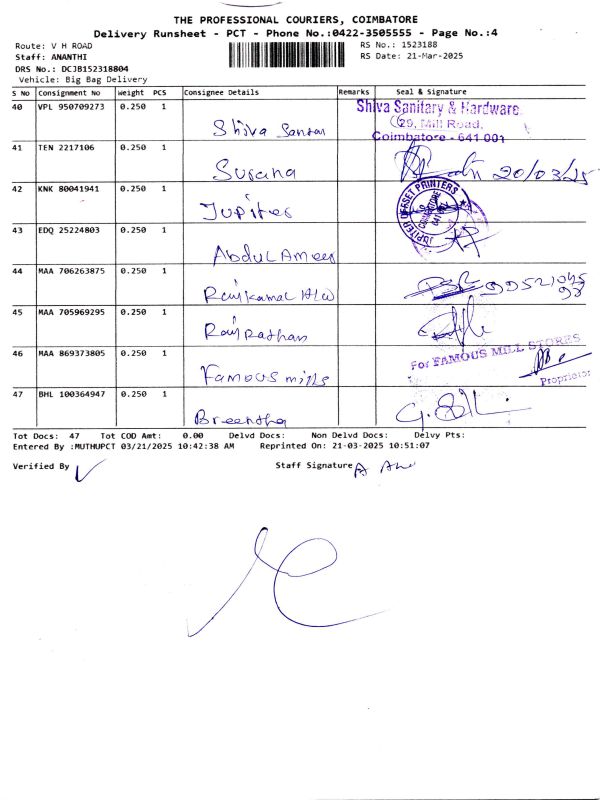 THE PROFESSIONAL COURIERS, COIMBATORE
Delivery Runsheet - PCT - Phone No.:0422-3505555 - Page No.:4
Route: V H ROAD
RS No.: 1523188
Staff: ANANTHI
RS Date: 21-Mar-2025
DRS No.: DCJB152318804
Vehicle: Big Bag Delivery
S No Consignment No Weight PCS Consignee Details Remarks Seal & Signature
40 VPL 950709273 0.250 1 Shiva
Shiva Sanitary & Hardware
29, Mill Road,
Coimbatore - 641 001
41 TEN 2217106 0.250 1 Susana
20/03/25
42 KNK 80041941 0.250 1 Jupiter
JUPITER OFFSET PRINTERS
43 EDQ 25224803 0.250 1 Abdul Ameer
44 MAA 706263875 0.250 1 Rajkamal H/w
45 MAA 705969295 0.250 1 Raj Rathan
46 MAA 869373805 0.250 1 Famous mills
For FAMOUS MILL STORES
Proprietor
47 BHL 100364947 0.250 1 Breentha
Tot Docs: 47 Tot COD Amt: 0.00 Delvd Docs: Non Delvd Docs: Delvy Pts:
Entered By :MUTHUPCT 03/21/2025 10:42:38 AM Reprinted On: 21-03-2025 10:51:07
Verified By
Staff Signature